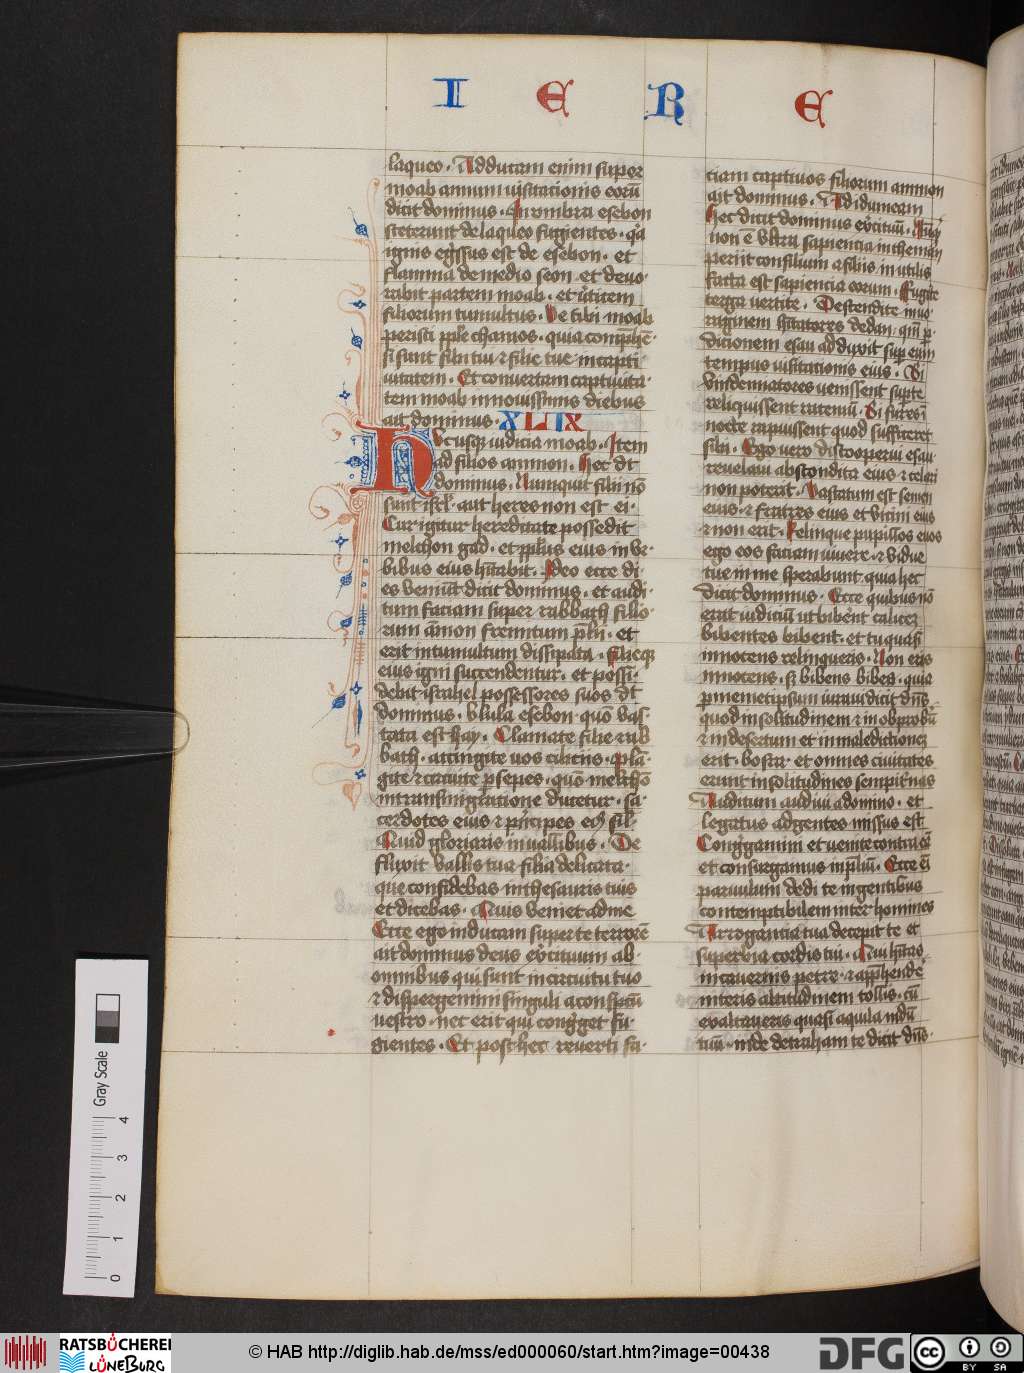 I E R E
laqueo. Adducam enim super
moab annum uisitacionis eorū
dicit dominus. In vmbra esebon
steterunt de laqueo fugientes. q̄a
ignis eg̃ssus est de esebon. et
flamma de medio seon et deuo-
rabit partem moab. et v̓titem
filiorum tumultus. Ve tibi moab
peristi pp̄le chamos. quia compͥhē-
si sunt filii tui ⁊ filie tue in capti
uitatem. Et conuertam captiuita-
tem moab in nouissimis diebus
ait dominus. XLIX
Hucusqꝫ iudicia moab. Item
ad filios ammon. Hec dt̄
dominus. Numquit filii nō
sunt isrl̓. aut heres non est ei.
Cur igitur hereditate possedit
melchon gad. et ppl̓us eius in vr-
bibus eius hītabit. Ideo ecce di-
es veniūt dicit dominus. et audi-
tum faciam super rabbath filio-
rum āmon fremitum pl̄ii. et
erit in tumultum dissipata. filieqꝫ
eius igni succendentur. et possi-
debit israhel possessores suos dt̄
dominus. vlula esebon quō vas-
tata est hay. Clamate filie rab
bath. accingite uos ciliciis. plā-
gite ⁊ circuite p̱ sepes. quō melchō
in transmigr̄atione ducetur. sa-
cerdotes eius ⁊ pͥncipes eiꝰ sil̓.
Quid gloriaris in uallibus. De
fluxit vallis tua filia delicata.
que confidebas in thesauris tuis
et dicebas. Quis veniet ad me
Ecce ego inducam super te terrorē
ait dominus deus ex̓cituum ab
omnibus qui sunt in circuitu tuo
⁊ dispergemini singuli a conspc̄u
uestro. nec erit qui cong̓get fu-
gientes. Et post hec reuerti fa-
ciam captiuos filiorum ammon
ait dominus. Ad idumeam
Hec dicit dominus ex̓cituū. Nūqͥ
non ē vltra sapiencia in theman
periit consilium a filiis inutilis
facta est sapiencia eorum. Fugite
terga uertite. Descendite in uo-
raginem hītatores dedan. qm̄ p̱-
dicionem esau adduxit suꝑ eum
tempus uisitacionis eius. Si
vindemiatores uenissent suꝑ te
reliquissent racemū. Si fures ī
nocte rapuissent quod sufficeret
sibi. Ego vero discooperui esau
reuelaui abscondita eius ⁊ celari
non poterit. Vastatum est semen
eius. ⁊ fratres eius et vicini eius
⁊ non erit. Relinque pupillos tuos
ego eos faciam uiuere. ⁊ vidue
tue in me sperabunt. quia hec
dicit dominus. Ecce quibus nō
erat iudiciū ut bibe᷑nt calicem
bibentes bibent. et tu quasi
innocens relinqueris. Non eris
innocens. sꝫ bibens bibes. quia
p̱ memetipsum iuraui dicit dn̄s
quod in solitudinem ⁊ in obprobͥū
⁊ in desertum et in maledictionem
erit. bosra. et omnes ciuitates
erunt in solitudines sempit᷑nas
Auditum audiui a domino. et
legatus ad gentes missus est
Cong̓gamini et uenite contra eā
et consurgamus in pl̄iū. Ecce eī
paruulum dedi te in gentibus
contemptibilem inter homines
Arrogancia tua decepit te et
superbia cordis tui. Qui hītas
in cauernis petre. ⁊ apphende᷑
niteris altitudinem collis. cū
exaltaueris quasi aquila nidū
tuū. inde detraham te dicit dn̄s.
Gray Scale
0 1 2 3 4
RATSBÜCHEREI
LÜNEBURG
© HAB http://diglib.hab.de/mss/ed000060/start.htm?image=00438
DFG
cc BY SA